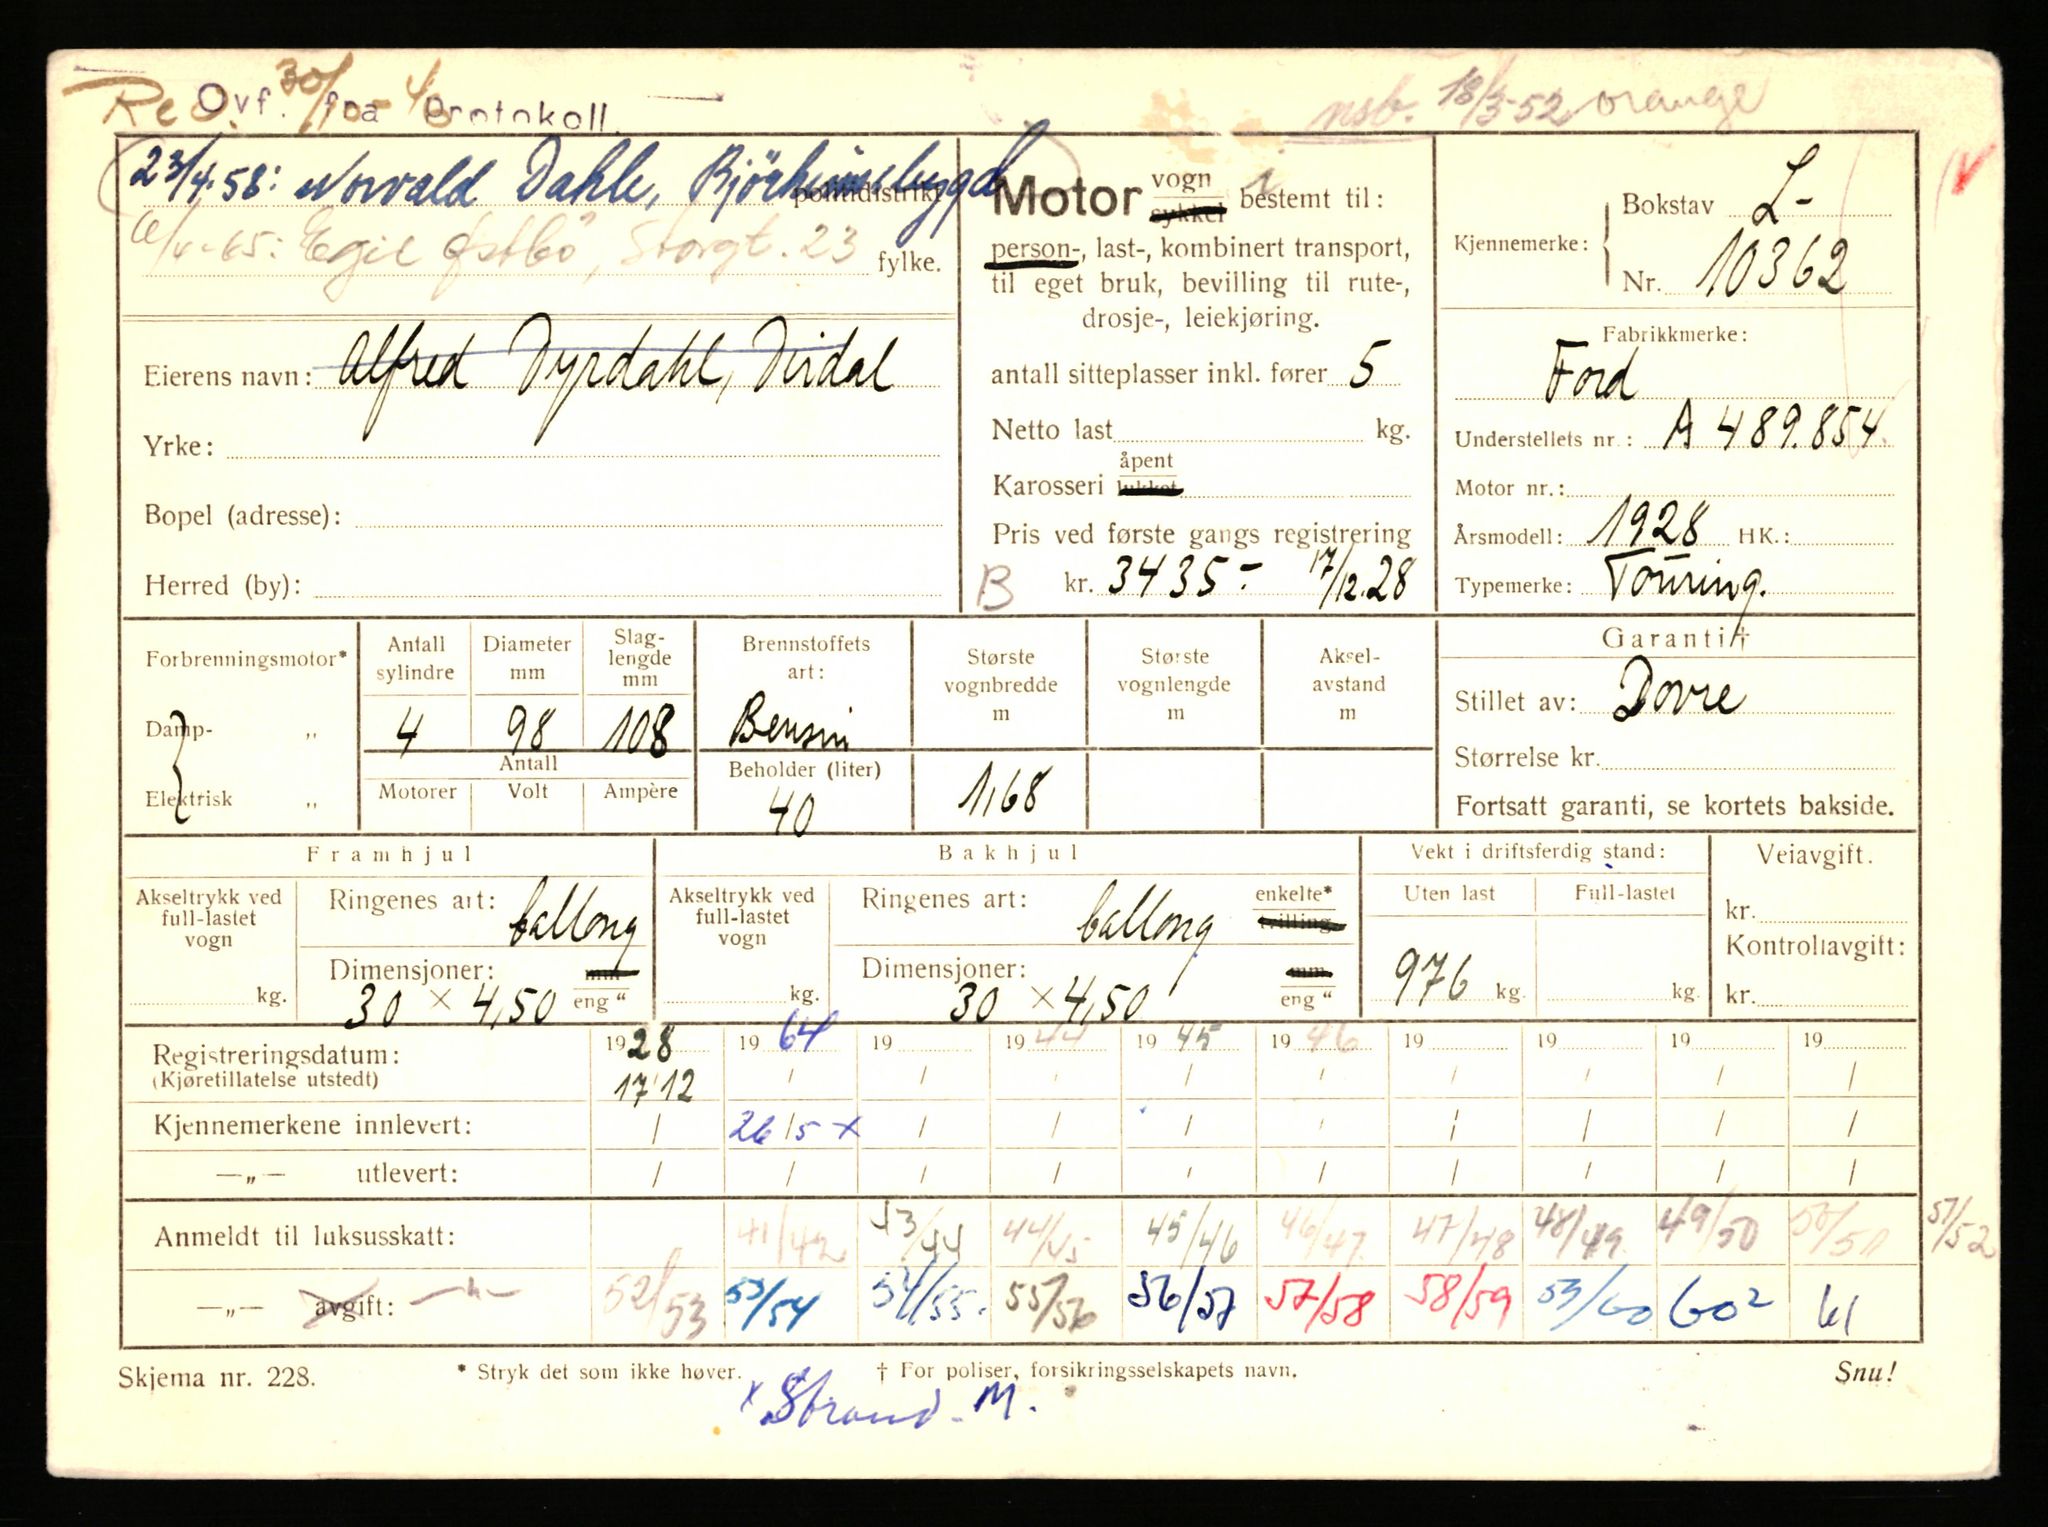 Reg. 30/10-40
Ovf. fra Protokoll.
nsb. 13/3-52 orange
23/4-58: Norvald Dahle, Bjørheimsbygd
politidistrikt
-65: Egil Østbö, Storgt. 23 fylke.
Eierens navn: Alfred Dyrdahl, Dirdal
Yrke:
Bopel (adresse):
Herred (by):
Motor vogn sykkel bestemt til:
person-, last-, kombinert transport,
til eget bruk, bevilling til rute-,
drosje-, leiekjøring.
antall sitteplasser inkl. fører 5
Netto last kg.
Karosseri åpent lukket
Pris ved første gangs registrering
B kr. 3435.- 17/12.28
Kjennemerke: Bokstav L-
Nr. 10362
Fabrikkmerke:
Ford
Understellets nr.: A 489.854
Motor nr.:
Årsmodell: 1928 HK.:
Typemerke: Touring.
Forbrenningsmotor*
Damp- „
Elektrisk „
Antall sylindre 4
Diameter mm 98
Slag-lengde mm 108
Antall
Motorer Volt Ampère
Brennstoffets art: Bensin
Beholder (liter) 40
Største vognbredde m 1,68
Største vognlengde m
Aksel-avstand m
Garanti†
Stillet av: Dovre
Størrelse kr.
Fortsatt garanti, se kortets bakside.
Framhjul
Akseltrykk ved full-lastet vogn kg.
Ringenes art: ballong
Dimensjoner: mm
30 × 4,50 eng "
Bakhjul
Akseltrykk ved full-lastet vogn kg.
Ringenes art: ballong enkelte* tvilling
Dimensjoner: mm
30 × 4,50 eng "
Vekt i driftsferdig stand:
Uten last Full-lastet
976 kg. kg.
Veiavgift.
kr.
Kontrollavgift:
kr.
Registreringsdatum: 1928 1964 19 1944 1945 1946 19 19 19 19
(Kjøretillatelse utstedt) 17/12 / / / / / / / / /
Kjennemerkene innlevert: / 26/5 x / / / / / / / /
—„— utlevert: / / / / / / / / / /
Anmeldt til luksusskatt: 41/42 43/44 44/45 45/46 46/47 47/48 48/49 49/50 50/51 51/52
—„— avgift: —„— 52/53 53/54 54/55 55/56 56/57 57/58 58/59 53/60 60² 61
Skjema nr. 228.
* Stryk det som ikke høver.
† For poliser, forsikringsselskapets navn.
Snu!
x Strand. M.